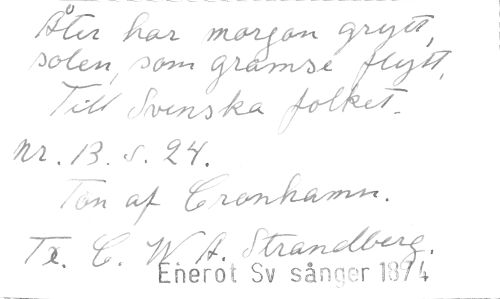 Åter har morgon grytt,
solen, som gramse flytt,
Till Svenska folket.
Nr. 13. s. 24.
Ton af Cronhamn.
Tx. C. W A. Strandberg.
Enerot Sv sånger 1874